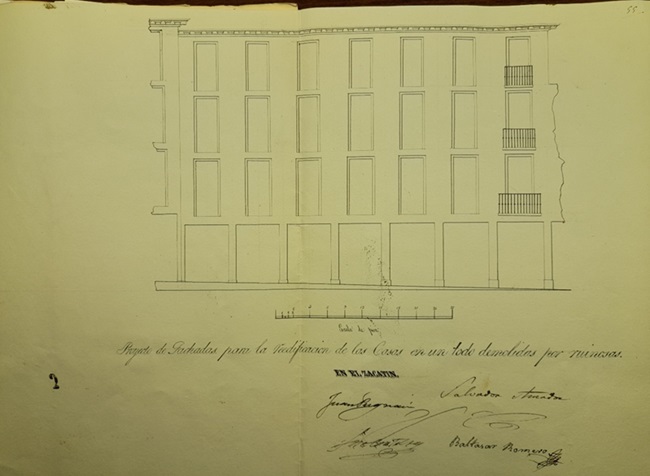 55.
Escala de pies
Proyecto de Fachadas para la reedificación de las Casas en un todo demolidas por ruinosas.
EN EL ZACATIN.
2
Salvador Amador
Juan Pugnaire
Baltasar Romero